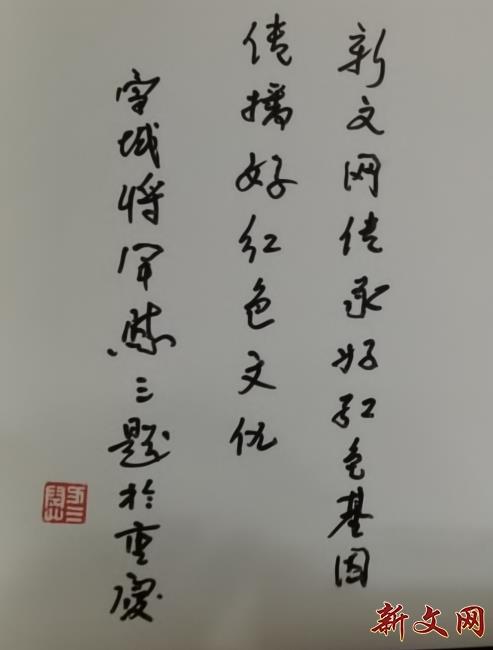 新文网传承好红色基因
传播好红色文化
将军三题於重庆
新文网